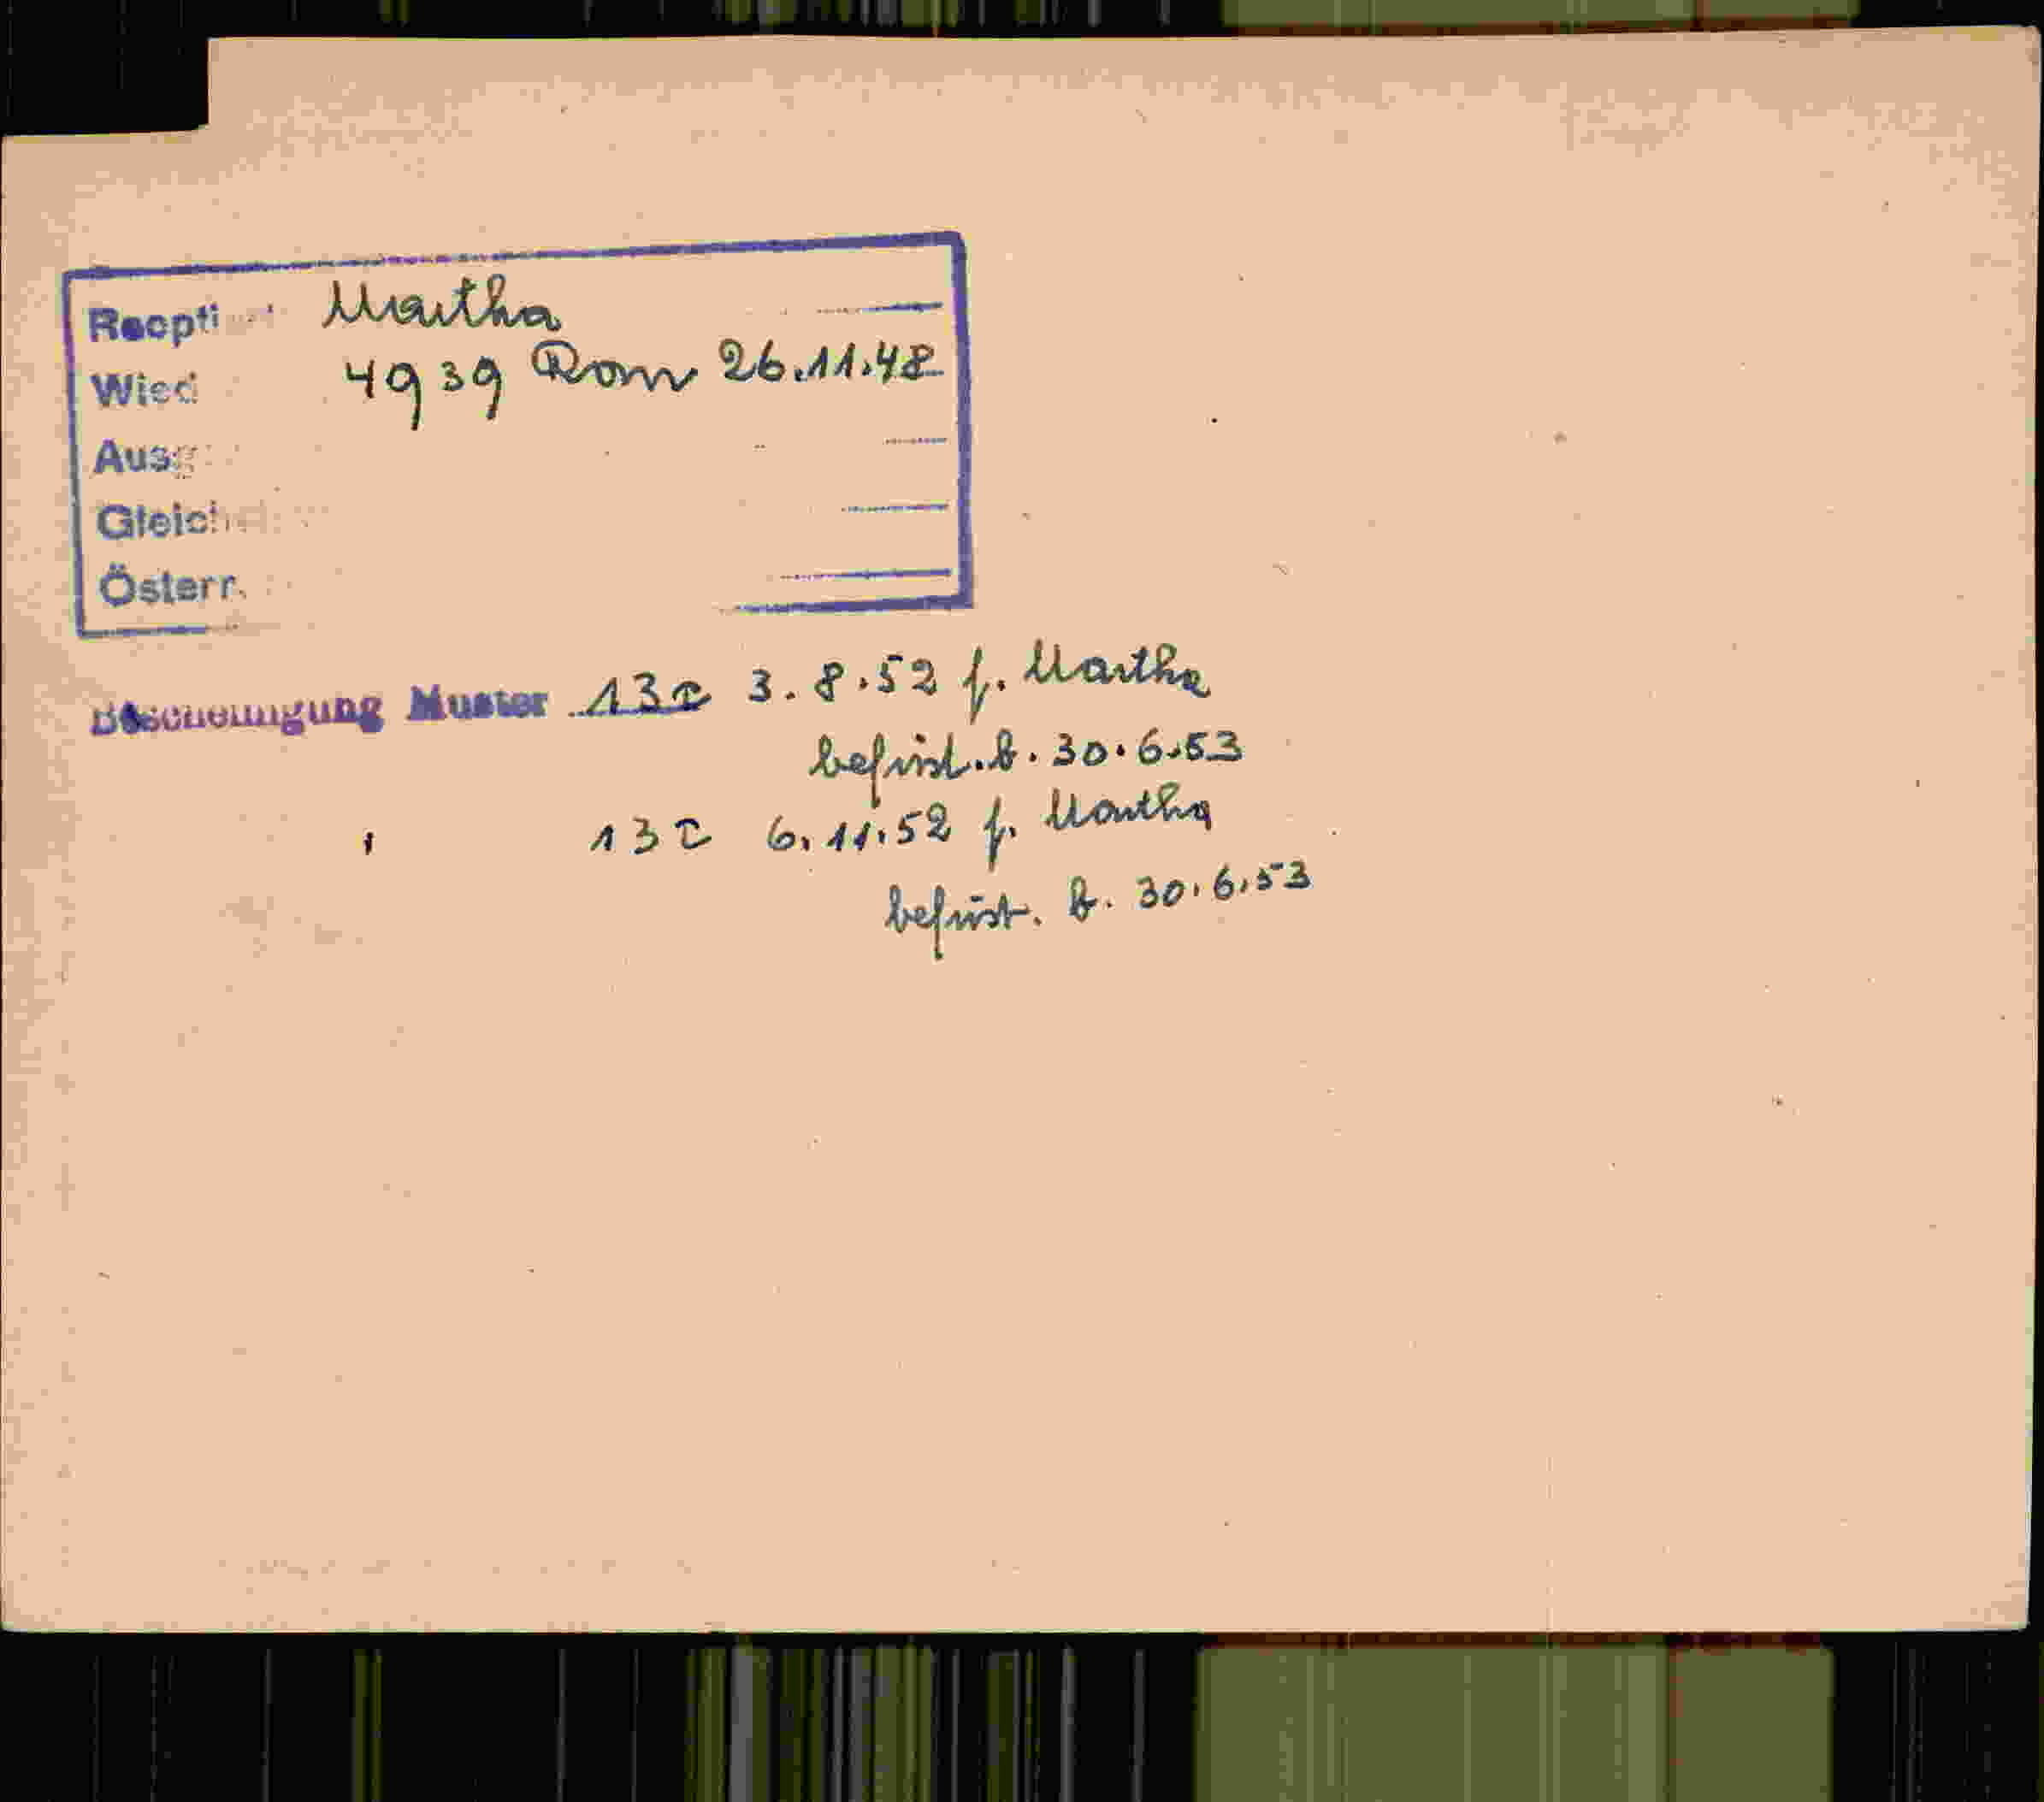 Reopti Martha
Wied 4939 Rom 26.11.48
Ausg
Gleich
Österr.
Bescheinigung Muster 13c 3.8.52 f. Martha
befrist. b. 30.6.53
13c 6.11.52 f. Martha
befrist. b. 30.6.53